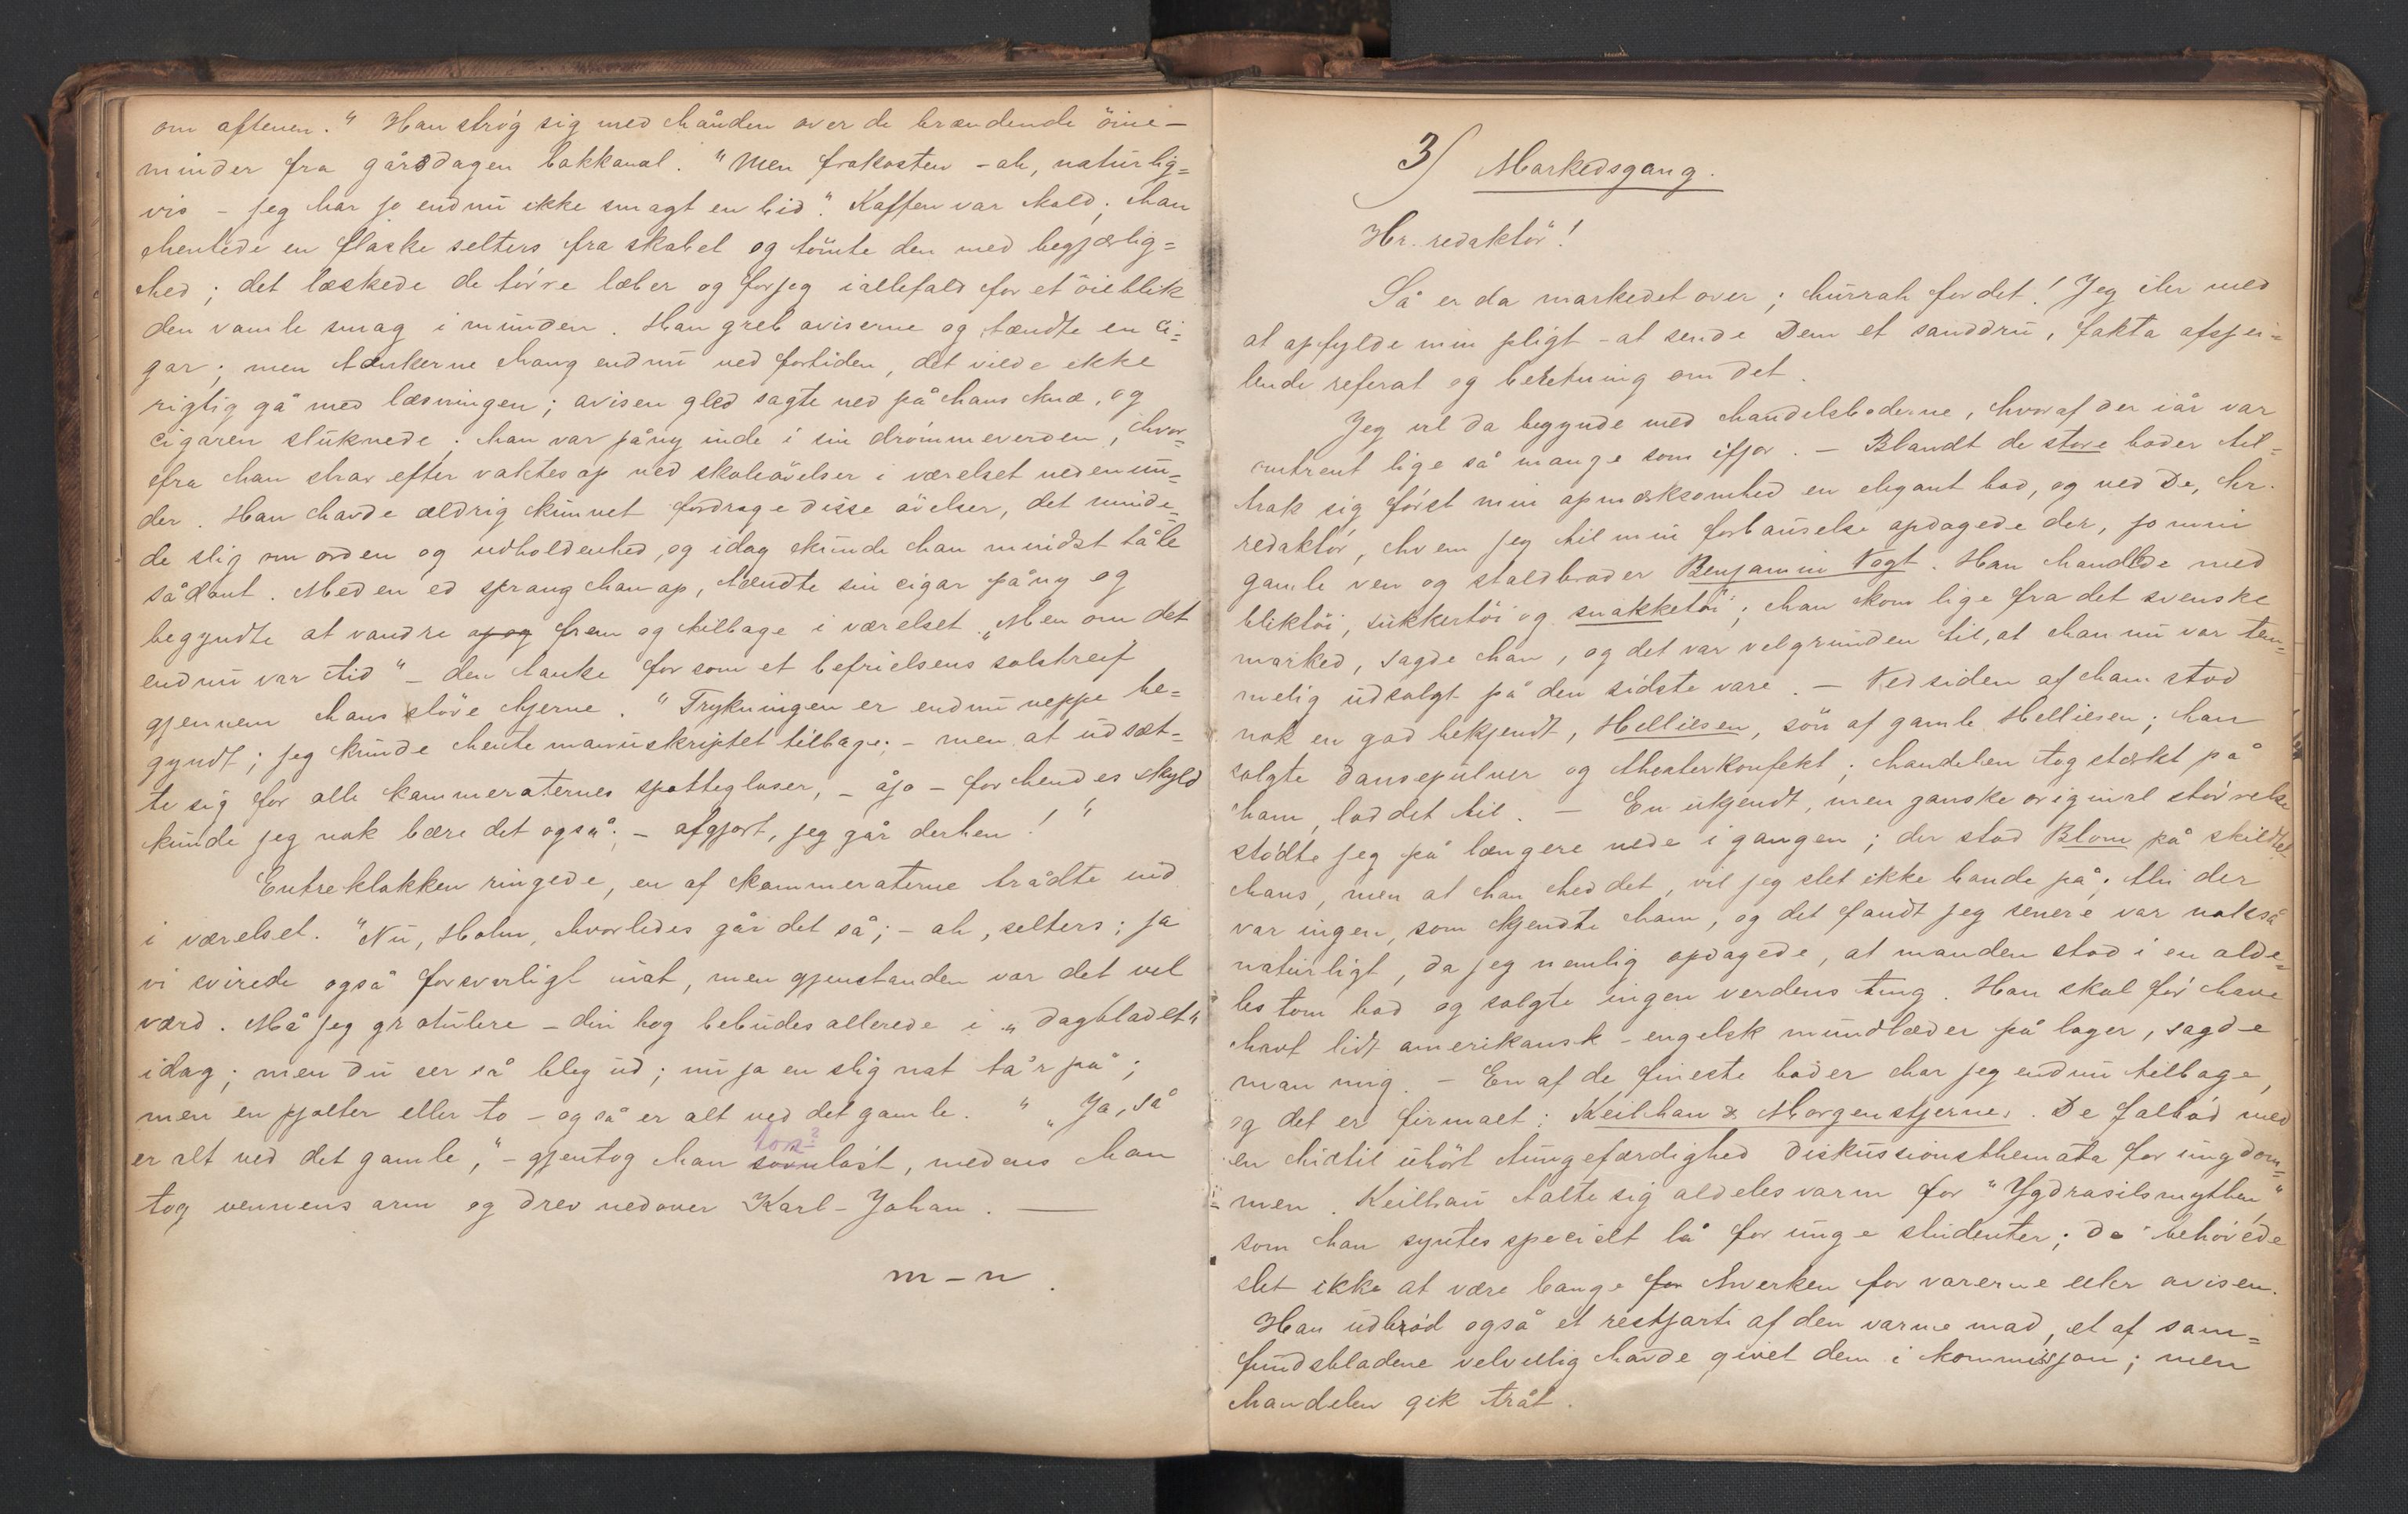 om aftenen." Han strøg sig med hånden over de brændende öine –
minder fra gårsdagen bakkanal. "Men frokosten – ah, naturlig=
vis – jeg har jo endnu ikke smagt en bid." Kaffen var kold; han
hentede en flaske selters fra skabet og tömte den med begjærlig=
hed; det læskede de törre læber og forjog iallefald for et öieblik
den vamle smag i munden. Han greb aviserne og tændte en ci=
gar; men tankerne hang endnu ved fortiden, det vilde ikke
rigtig gå med læsningen; avisen gled sagte ned på hans knæ, og
cigaren sluknede; han var påny inde i sin drømmeverden, hvor=
fra han strax efter vaktes op ved skoleövelser i værelset nedenun=
der. Han havde aldrig kunnet fordrage disse övelser, det minde=
de slig om orden og udholdenhed, og idag kunde han mindst tåle
sådant. Med en ed sprang han op, tændte sin cigar påny og
begyndte at vandre op og frem og tilbage i værelset. "Men om det
endnu var tid" – den tanke for som et befrielsens solstreif
gjennem hans slöve hjerne. "Trykningen er endnu neppe be=
gyndt; jeg kunde hente manuskriptet tilbage; – men at udsæt=
te sig for alle kammeraternes spottegloser, – åjo – for hendes skyld
kunde jeg nok bære det også; – afgjort, jeg går derhen!"
Entreklokken ringede, en af kammeraterne trådte ind
i værelset. "Nu, Holm, hvorledes går det så; – ah, selters; ja
vi svirede også forsvarligt inat, men gjenstanden var det vel
værd. Må jeg gratulere – din bog bebudes allerede i "Dagbladet"
idag; men du ser så bleg ud; nu ja en slig nat ta'r på;
men en pjolter eller to – og så er alt ved det gamle." "Ja, så
er alt ved det gamle," – gjentog han tonløst, medens han
tog vennens arm og drev nedover Karl-Johan. —
m – n.
3) Markedsgang.
Hr. redaktör!
Så er da markedet over; hurrah for det! Jeg iler med
at opfylde min pligt – at sende Dem et sanddru, fakta afspei=
lende referat og beretning om det.
Jeg vil da begynde med handelsboderne, hvoraf der iår var
omtrent lige så mange som ifjor. – Blandt de store boder til=
trak sig først min opmærksomhed en elegant bod, og ved De, hr.
redaktör, hvem jeg til min forbauselse opdagede der, jo min
gamle ven og staldbroder Benjamin Vogt. Han handlede med
bliktöi, sukkertöi og snakketöi; han kom lige fra det svenske
marked, sagde han, og det var vel grunden til, at han nu var tem=
melig udsolgt på den sidste vare. – Ved siden af ham stod
nok en god bekjendt, Helliesen, sön af gamle Helliesen; han
solgte dansepulver og theaterkonfekt; handelen tog stærkt på
ham, lod det til. – En ukjendt, men ganske original störrelse
stödte jeg på længere nede i gangen; der stod Blom på skildtet
hans, men at han hed det, vil jeg slet ikke bande på; thi der
var ingen, som kjendte ham, og det fandt jeg senere var nokså
naturligt, da jeg nemlig opdagede, at manden stod i en alde=
les tom bod og solgte ingen verdens ting. Han skal för have
havt lidt amerikansk-engelsk mundlæder på lager, sagde
man mig. – En af de fineste boder har jeg endnu tilbage,
og det er firmaet: Keilhau & Morgenstjerne. De falböd med
en hidtil uhört tungefærdighed diskussionsthemata for ungdom=
men. Keilhau talte sig aldeles varm for "Ygdrasilsmythen,"
som han syntes specielt lå for unge studenter; de behövede
slet ikke at være bange for hverken for varerne eller avisen.
Han udbröd også et restparti af den varme mad, et af sam=
fundsbladene velvillig havde givet dem i kommissjon; men
handelen gik tråt.